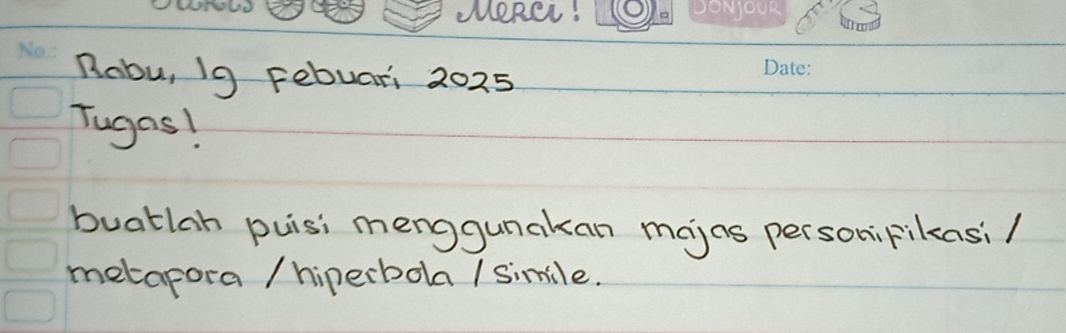 Merci! BONJOUR
No.: Date:
Rabu, 19 Februari 2025
Tugas!
buatlah puisi menggunakan majas personifikasi /
metapora / hiperbola / simile.